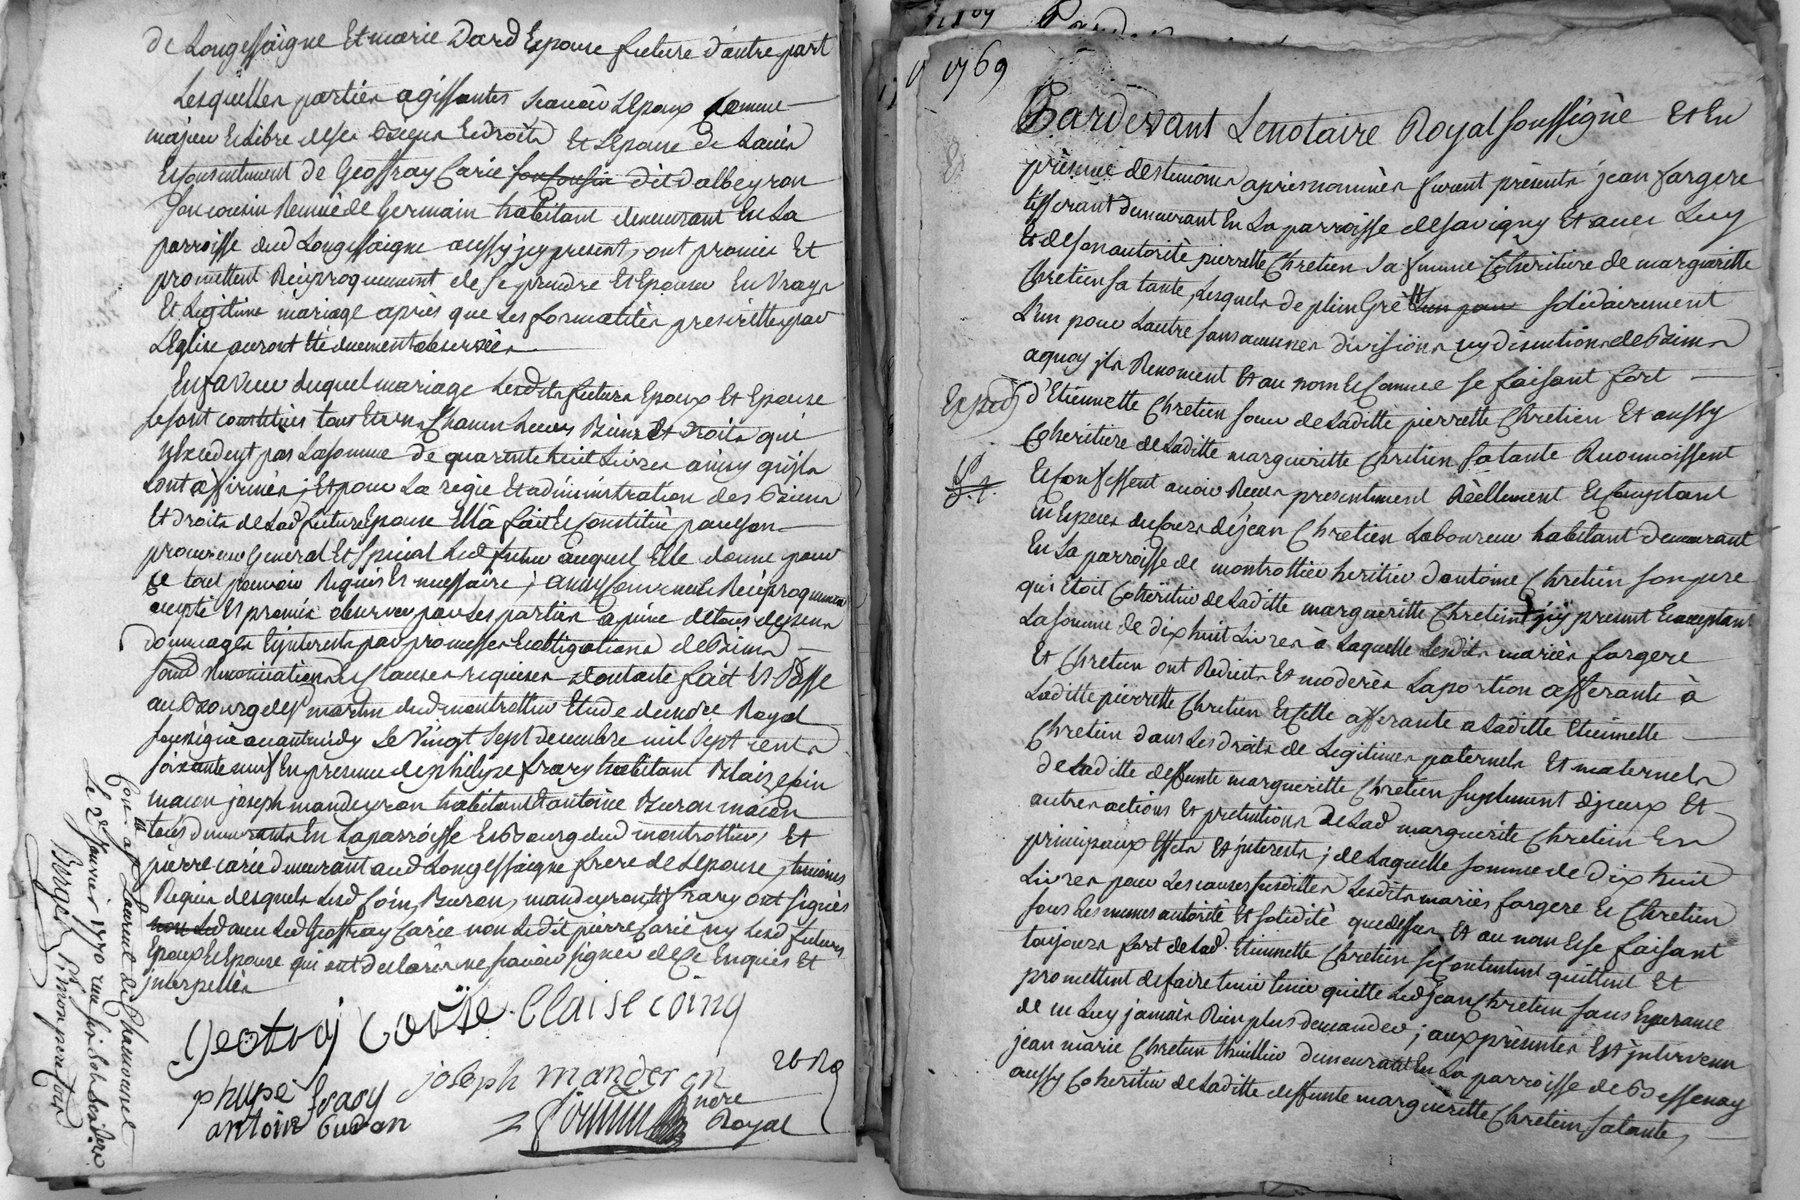 de Longessaigne Et marie Dard Epouse future d'autre part
Lesquelles parties agissantes scavoir L'Epoux comme
majeur et Libre de ses Biens et droits Et L'Epouse de L'avis
Et consentement de Geoffray Carie son cousin dit dalbeyron
son cousin Remué de Germain habitant demeurant En La
parroisse dud Longessaigne aussy jcy present, ont promis Et
promettent Reciproquement de se prendre Et Epouser En Vraye
Et Legitime mariage après que Les formalités prescrittes par
L'Eglise auront été duement observées
En faveur duquel mariage Lesdits futurs Epoux Et Epouse
se sont constitués tous Et uns Chacun Leurs Biens Et droits qui
n'Excedent pas La somme de quarente huit Livres ainsy qu'ils
L'ont affirmés ; Et pour La regie Et administration des Biens
Et droits de Lad future Epouse Elle a fait Et constitué pour son
procureur General Et special Led futur auquel Elle donne pour
ce tout pouvoir Requis Et necessaire ; ainsy convenu Reciproquement
accepté Et promis observer par Les parties a peine de tous depens
dommages Et interets par promesses Et obligations de Biens
soumd Renonciations Et Clauses requises dont acte fait Et Passé
au Bourg de St martin dud montrottier Etude du nore Royal
soussigné avant midy Le Vingt sept decembre mil sept cents
soixante neuf En presence de philipe frary habitant Blaize Coin
macon joseph manderon habitant Et antoine Buron macon
tous demeurants En La parroisse Et Bourg dud montrottier, Et
pierre carie demeurant aud Longessaigne frere de L'epouse, temoins
Requis desquels Led Coin, Buron, manderon, Et frary ont signés
non Led avec Led Geoffray Carie non Ledit pierre Carie ny Lesd futurs
Epoux Et Epouse qui ont declarés ne scavoir signer de ce Enquis Et
jnterpellés
Blaise coing
joseph manderon
phlipe frary
antoine budon
nore
Royal
Con. a St Laurent de Chamousset
Le 2 Janvier 1770 reçu six sols six den
Berger Pr mon pere
1769
Pardevant Le notaire Royal soussigné Et En
présence des temoins après nommés furent présents jean fargere
tisserant demeurant En La parroisse de savigny Et avec Luy
Et de son autorité pierrette Chretien sa femme Coheritiere de margueritte
Chretien sa tante, Lesquels de plein Gré L'un pour solidairement
L'un pour L'autre sans aucunes divisions ny discutions de Biens
a quoy ils Renoncent Et au nom Et comme se faisant fort
Exped
d'Etiennette Chretien soeur de Laditte pierrette Chretien Et aussy
Coheritiere de Laditte margueritte Chretien sa tante Reconnoissent
Et confessent avoir Recu presentement Réellement Et Comptant
En Especes du cours de jean Chretien Laboureur habitant demeurant
En La parroisse de montrottier heritier d'antoine Chretien son pere
qui Etoit Cohéritier de Laditte margueritte Chretien jcy present Et acceptant
La somme de dix huit Livres à Laquelle Lesdits mariés fargere
Et Chretien ont Reduits Et moderés La portion afferante à
Laditte pierrette Chretien Et Celle afferante a Laditte Etiennette
Chretien dans Les droits de Legitimes paternels Et maternels
de Laditte deffunte margueritte Chretien suplement d'jceux Et
autres actions Et pretentions de Lad margueritte Chretien En
principaux Effets Et jnterests ; de Laquelle somme de dix huit
Livres pour Les causes susdittes Lesdits mariés fargere Et Chretien
sous Les memes autorité Et solidité que dessus Et au nom Et se faisant
toujours fort de Lad. Etiennette Chretien se Contentent quittent Et
promettent de faire tenir tenir quitte Led jean Chretien sans Esperance
de ne Luy jamais Rien plus demander ; aux présentes Est jntervenu
jean marie Chretien thuillier demeurant En La parroisse de Bessenay
aussy Coheritier de Laditte deffunte margueritte Chretien sa tante,